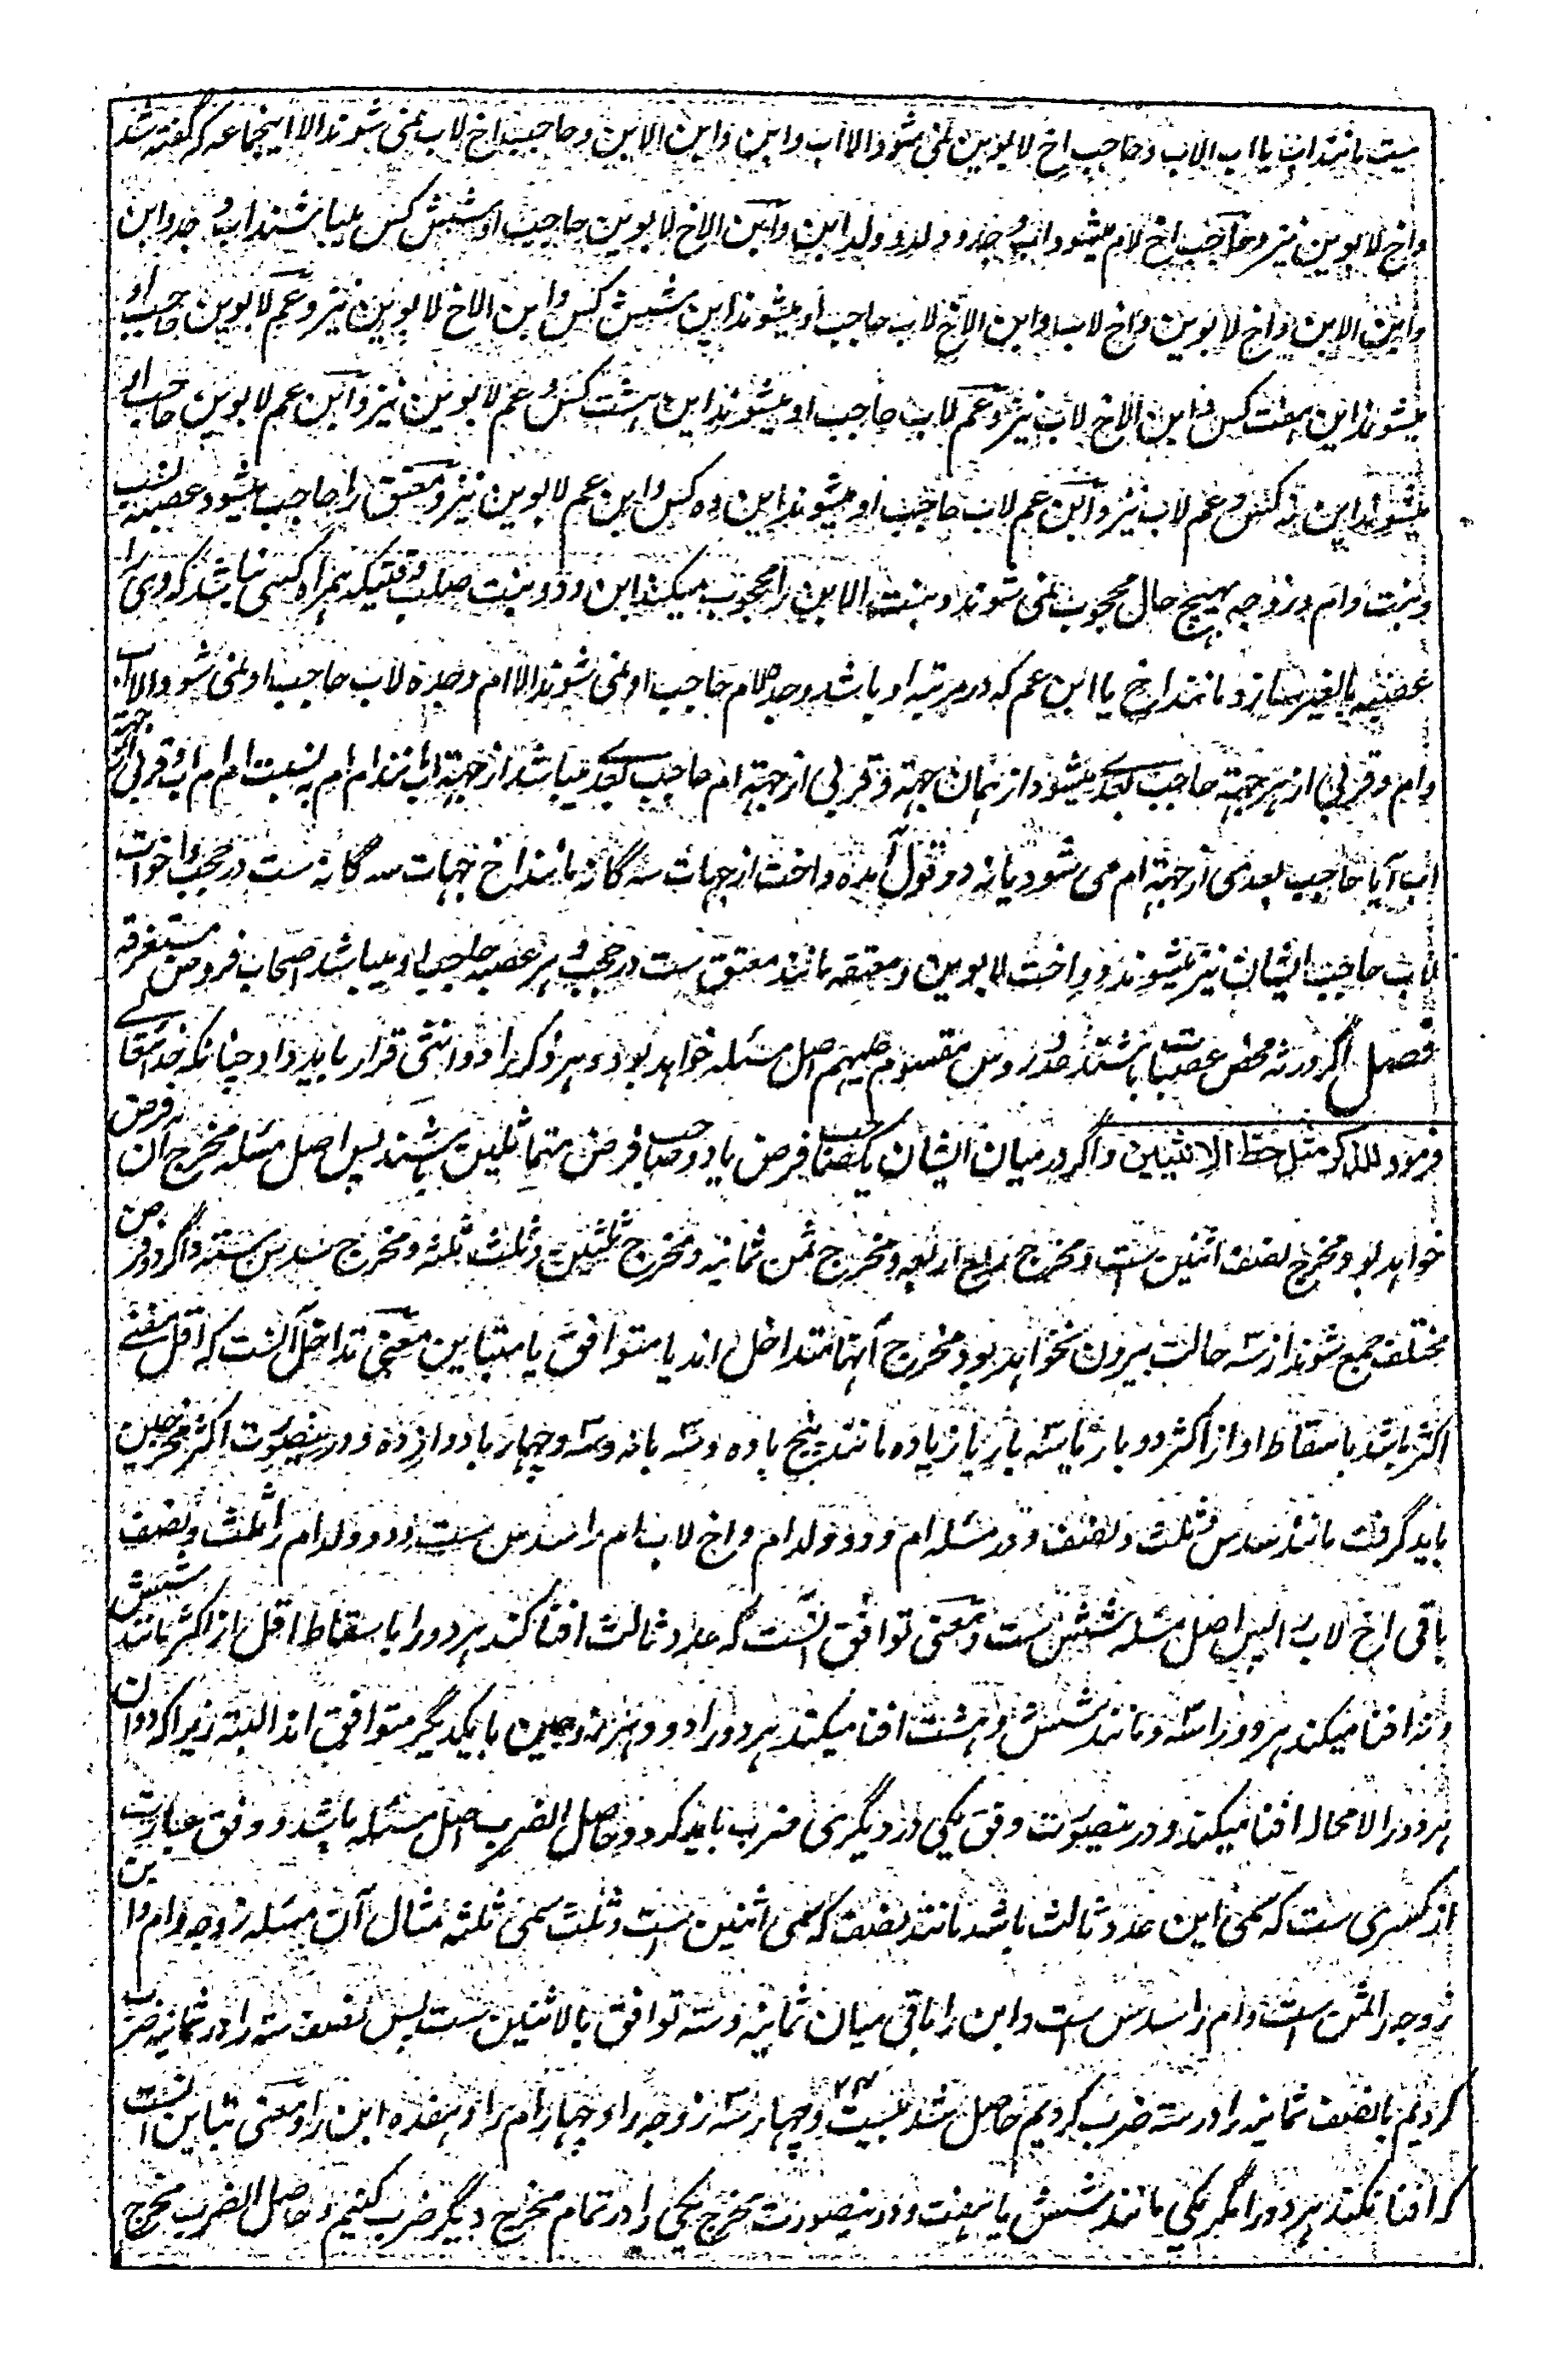 ست مانند اب یا اب الاب و حاجب اخ لابوین نمی شود الا اب و ابن و ابن الابن و حاجب اخ لاب نمی شوند الا اینجماعه که گفته شد
و اخ لابوین نیز و حاجب اخ لام میشود اب و جد و ولد و ولد ابن و ابن الاخ لابوین حاجب او شش کس میباشند اب و جد و ابن
و ابن الابن و اخ لابوین و اخ لاب و ابن الاخ لاب حاجب او میشوند این شش کس و ابن الاخ لابوین نیز و عم لابوین حاجب او
میشوند این هفت کس و ابن الاخ لاب نیز و عم لاب حاجب او میشوند این هشت کس و عم لابوین نیز و ابن عم لابوین حاجب او
میشوند این نه کس و عم لاب نیز و ابن عم لاب حاجب او میشوند این ده کس و ابن عم لابوین نیز و معتق را حاجب میشود عصبه نسب
و بنت و ام و زوجه بهیچ حال محجوب نمی شوند و بنت الابن را محجوب میکند ابن و دو بنت صلب وقتیکه همراه کسی نباشد که وی را
عصبه بالغیر سازد مانند اخ یا ابن عم که در مرتبه او باشد و جده لام حاجب او نمی شوند الا ام و جده لاب حاجب او نمی شود الا اب
و ام و قربی از هر جهة حاجب بعدی میشود از همان جهة و قربی از جهة ام حاجب بعدی میباشد از جهة اب مانند ام ام به نسبت ام ام اب و قربی از جهة
اب آیا حاجب بعدی از جهة ام می شود یا نه دو قول آمده و اخت از جهات سه گانه مانند اخ جهات سه گانه ست در حجب و اخوات
لاب حاجب ایشان نیز میشوند دو اخت لابوین و معتقه مانند معتق ست در حجب و هر عصبه حاجب او میباشد اصحاب فروض مستغرقه
فصل اگر ورثه محض عصبات باشند عدد روس مقسوم علیهم اصل مسئله خواهد بود و هر ذکر را دو انثی قرار باید داد چنانکه خدایتعالی
فرمود للذکر مثل حظ الانثیین و اگر در میان ایشان یک صاحب فرض یا دو صاحب فرض متماثلین باشند پس اصل مسئله مخرج ان فرض
خواهد بود و مخرج نصف اثنین ست و مخرج ربع اربعه و مخرج ثمن ثمانیه و مخرج ثلثین و ثلث ثلثه و مخرج سدس سته و اگر دو فرض
مختلف جمع شوند از سه حالت بیرون نخواهد بود مخرج آنها متداخل اند یا متوافق یا متباین معنی تداخل آنست که اقل مفنی
اکثر باشد باسقاط او از اکثر دو بار یا سه بار یا زیاده مانند پنج باده و سه بانه و سه و چهار با دوازده و درینصورت اکثر مخرجین
باید گرفت مانند سدس و ثلث و نصف و در مسئله ام و دو ولد ام و اخ لاب ام را سدس ست و دو ولد ام را ثلث و نصف
باقی اخ لاب را پس اصل مسئله شش ست و معنی توافق آنست که عدد ثالث افنا کند هر دو را باسقاط اقل از اکثر مانند شش
و نه افنا میکند هر دو را سه و مانند شش و هشت افنا میکند هر دو را دو و هر زوجین با یکدیگر متوافق اند البته زیرا که دو ان
هر دو را لامحاله افنا میکند و درینصورت وفق یکی در دیگری ضرب باید کرد و حاصل الضرب اصل مسئله باشد و وفق عبارت
از کسری ست که سمی این عدد ثالث باشد مانند نصف که سمی اثنین ست و ثلث سمی ثلثه مثال آن مسئله زوجه و ام و ابن
زوجه را ثمن ست و ام را سدس ست و ابن را باقی میان ثمانیه و سته توافق بالاثنین ست پس نصف سته را در ثمانیه ضرب
کردیم یا نصف ثمانیه را در سته ضرب کردیم حاصل شد بیست و چهار ۲۴ سه زوجه را و چهار ام را و هفده ابن را و معنی تباین آنست
که افنا نکند هر دو را مگر یکی مانند شش یا هفت و درینصورت مخرج یکی را در تمام مخرج دیگر ضرب کنیم و حاصل الضرب مخرج